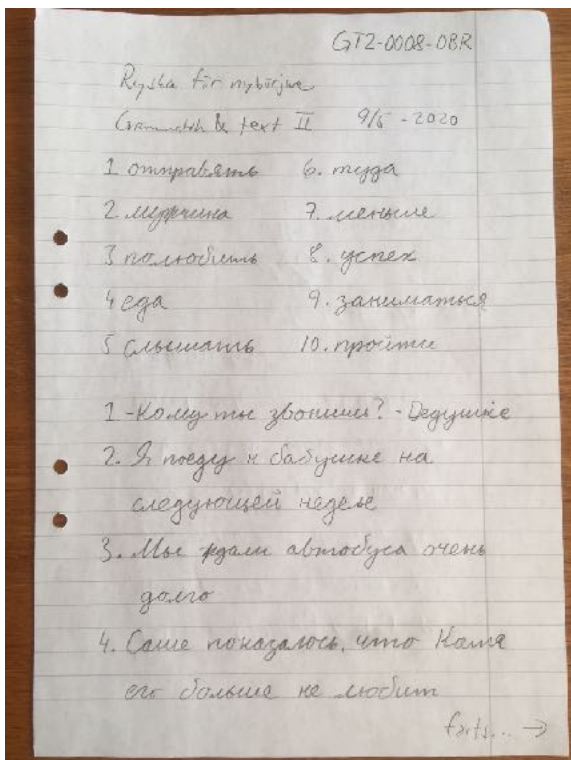 GT2-0008-OBR
Ryska för nybörjare
Grammatik & text II 9/5 - 2020
1 отправлять 6. туда
2. мужчина 7. меньше
3 полюбить 8. успех
4 еда 9. заниматься
5 слышать 10. пройти
1 - Кому ты звонишь? - Дедушке
2. Я поеду к бабушке на
следующей неделе
3. Мы ждали автобуса очень
долго
4. Саше показалось, что Катя
его больше не любит
forts... →